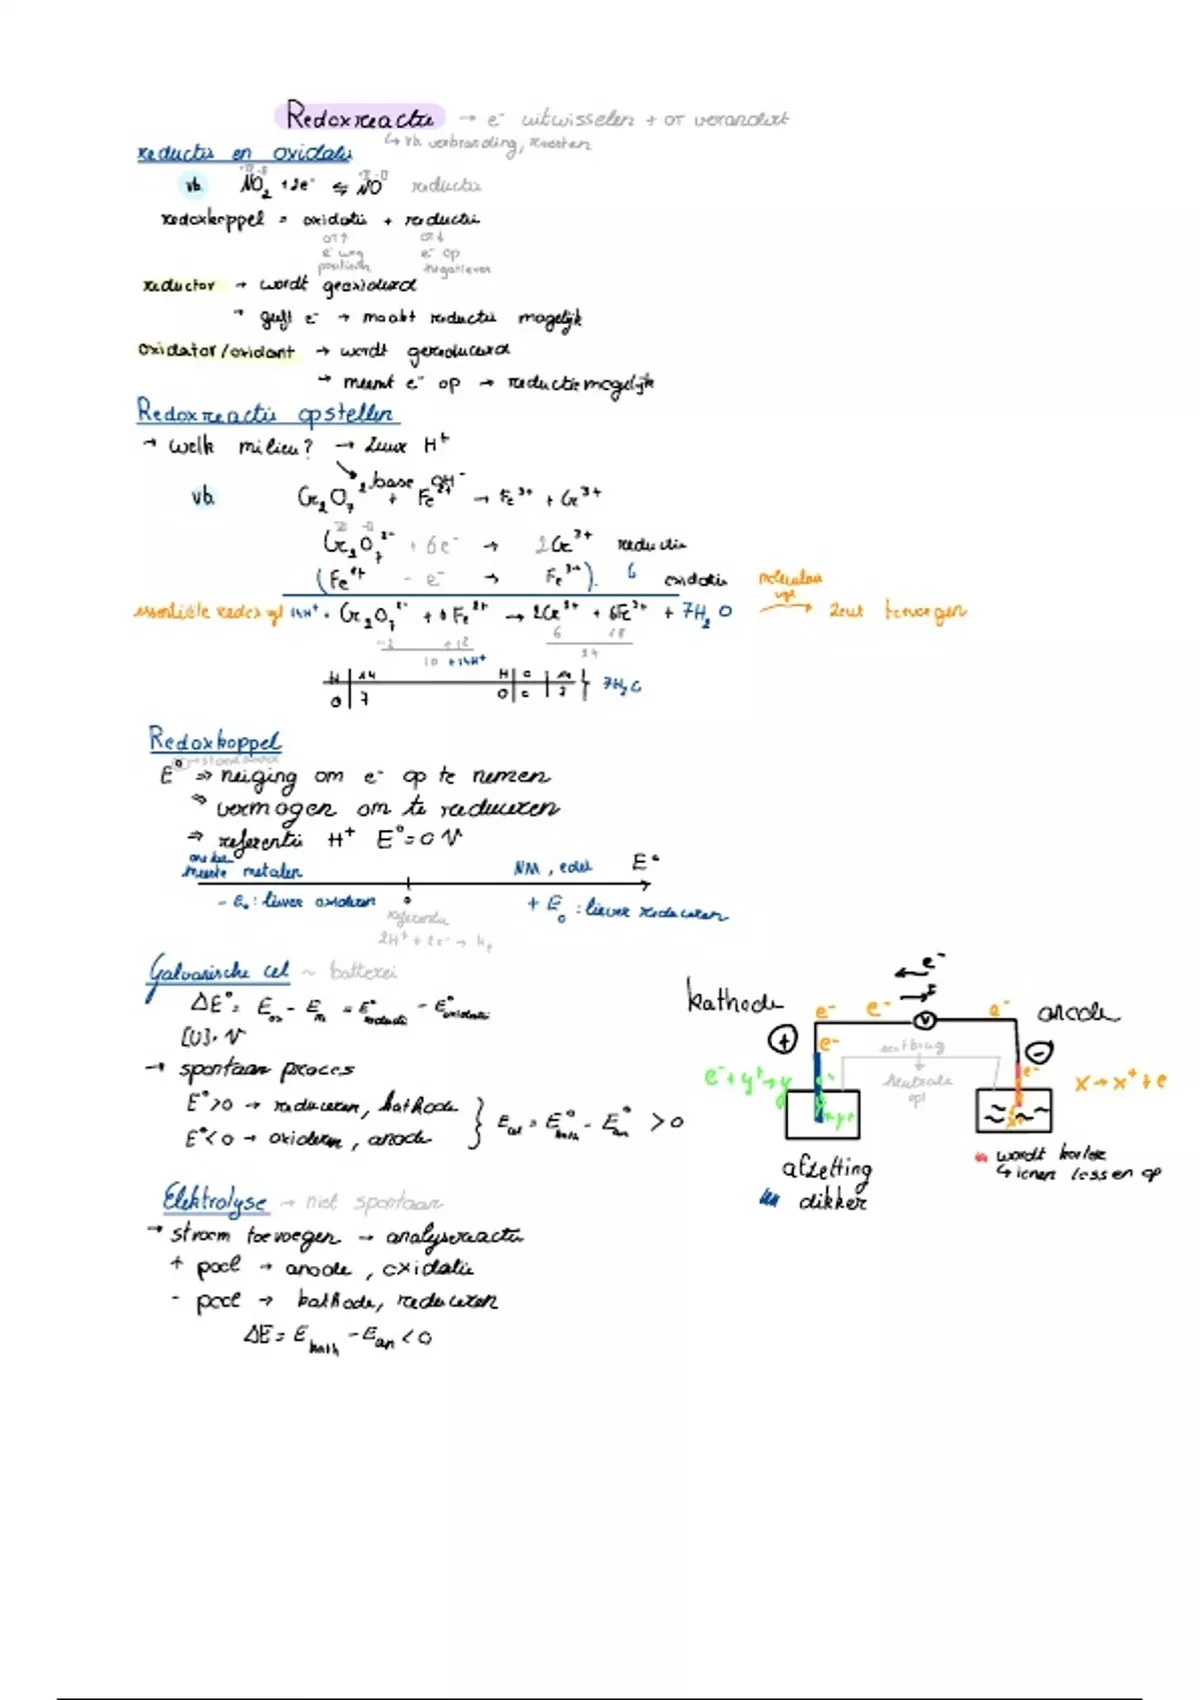 Redoxreactie → e⁻ uitwisselen + OT verandert
↳ vb. verbranding, roesten
reductie en oxidatie
vb. NO₂ + 2e⁻ ⇆ NO reductie
redoxkoppel = oxidatie + reductie
OT↑ OT↓
e⁻ weg e⁻ op
positiever negatiever
reductor → wordt geoxideerd
→ geeft e⁻ → maakt reductie mogelijk
oxidator/oxidant → wordt gereduceerd
→ neemt e⁻ op → reductie mogelijk
Redoxreactie opstellen
→ welk milieu? → zuur H⁺
↘ base OH⁻
vb. Cr₂O₇²⁻ + Fe²⁺ → Fe³⁺ + Cr³⁺
Cr₂O₇²⁻ + 6e⁻ → 2Cr³⁺ reductie
(Fe²⁺ - e⁻ → Fe³⁺). 6 oxidatie
essentiële redox vgl 14H⁺ + Cr₂O₇²⁻ + 6Fe²⁺ → 2Cr³⁺ + 6Fe³⁺ + 7H₂O moleculaire vgl → zout toevoegen
-2 +12 6 18
10 +14H⁺ 24
H | 14 H | 0 | 14
O | 7 O | 0 | 7 } 7H₂O
Redoxkoppel
E⁰ ⇒ neiging om e⁻ op te nemen
⇒ vermogen om te reduceren
⇒ referentie H⁺ E⁰ = 0 V
meeste metalen NM, edel E⁰
- E₀ : liever oxideren 0 + E₀ : liever reduceren
referentie
2H⁺ + 2e⁻ → H₂
Galvanische cel ~ batterij
ΔE⁰ = E ox - E = E⁰ reductie - E⁰ oxidatie
[U]. V
→ spontaan proces
E⁰ > 0 → reduceren, kathode
E⁰ < 0 → oxideren, anode } E cel = E⁰ kath - E⁰ an > 0
e⁻
kathode e⁻ e⁻ V e⁻ anode
+ e⁻ zoutbrug -
e⁻ + y⁺ → y neutrale opl e⁻ x → x⁺ + e
afzetting
dikker
wordt korter
↳ ionen lossen op
Elektrolyse → niet spontaan
→ stroom toevoegen → analysereactie
+ pool → anode, oxidatie
- pool → kathode, reduceren
ΔE = E kath - E an < 0